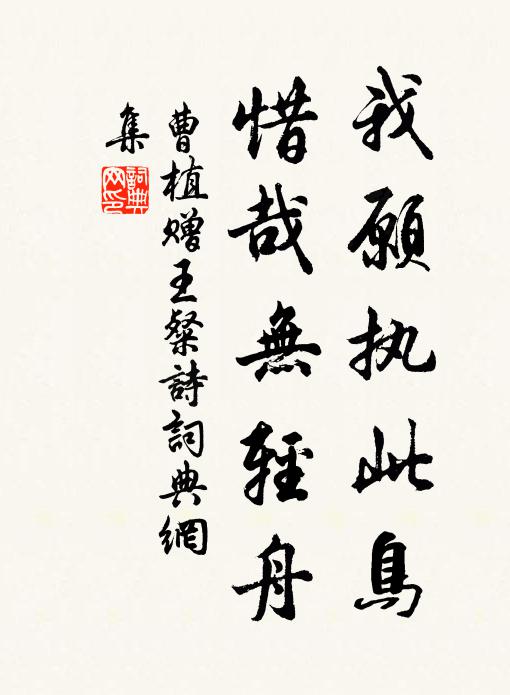 我願执此鳥
惜哉無輕舟
曹植赠王粲詩詞典網
集
詞典
网印